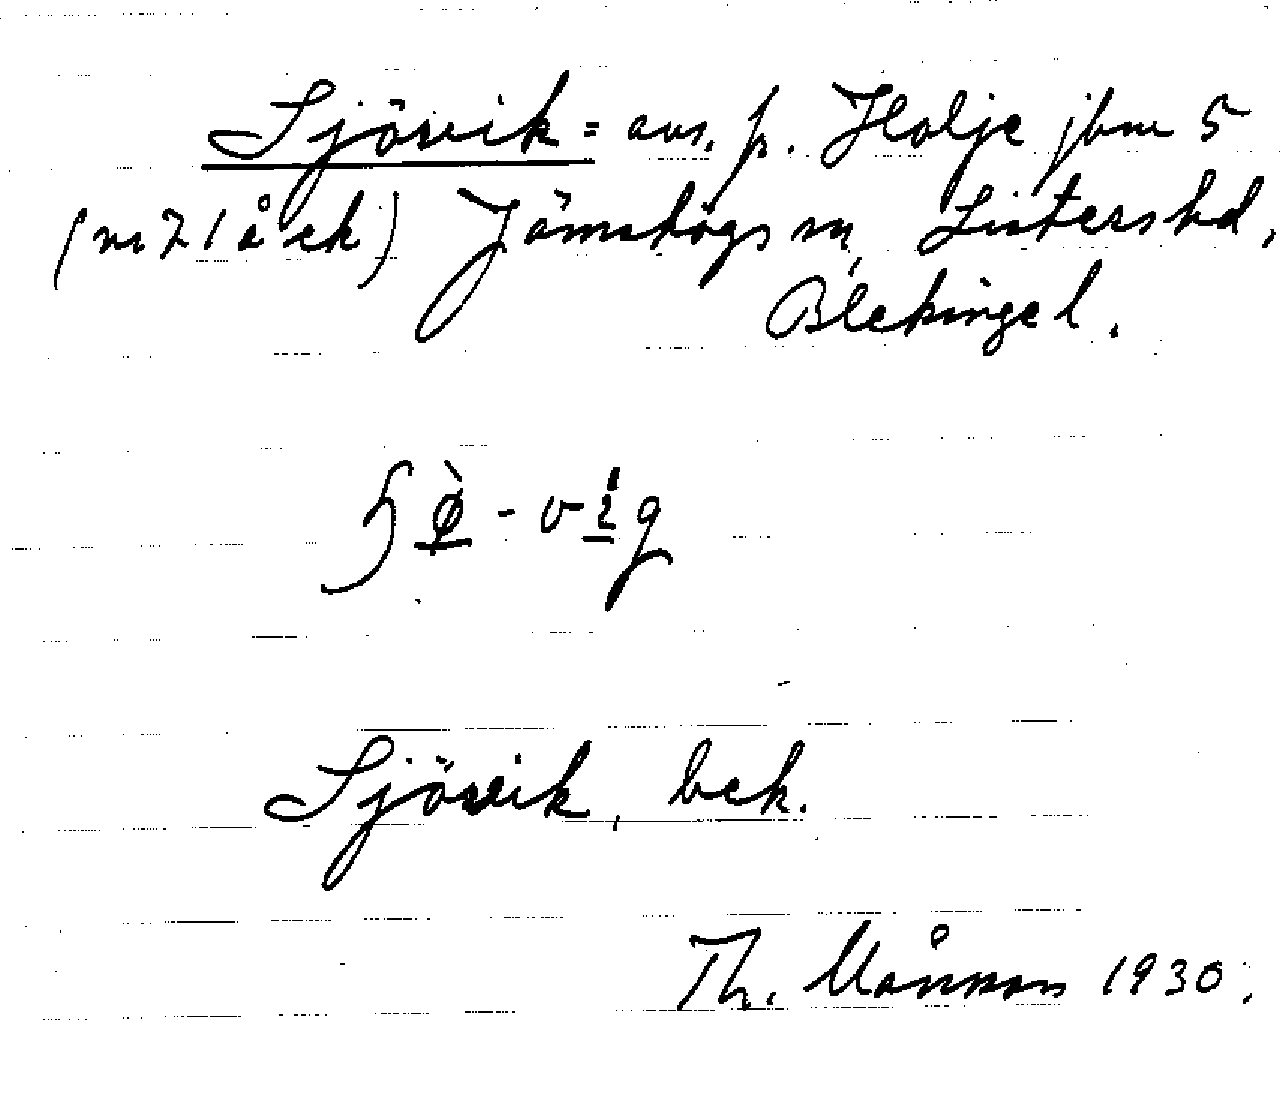 Sjövik = avs. fr. Holje jbnr 5
(nr 71 å ek) Jämshögs sn, Listers hd,
Blekinge l.
Sjövik, bek.
Th. Månsson 1930.